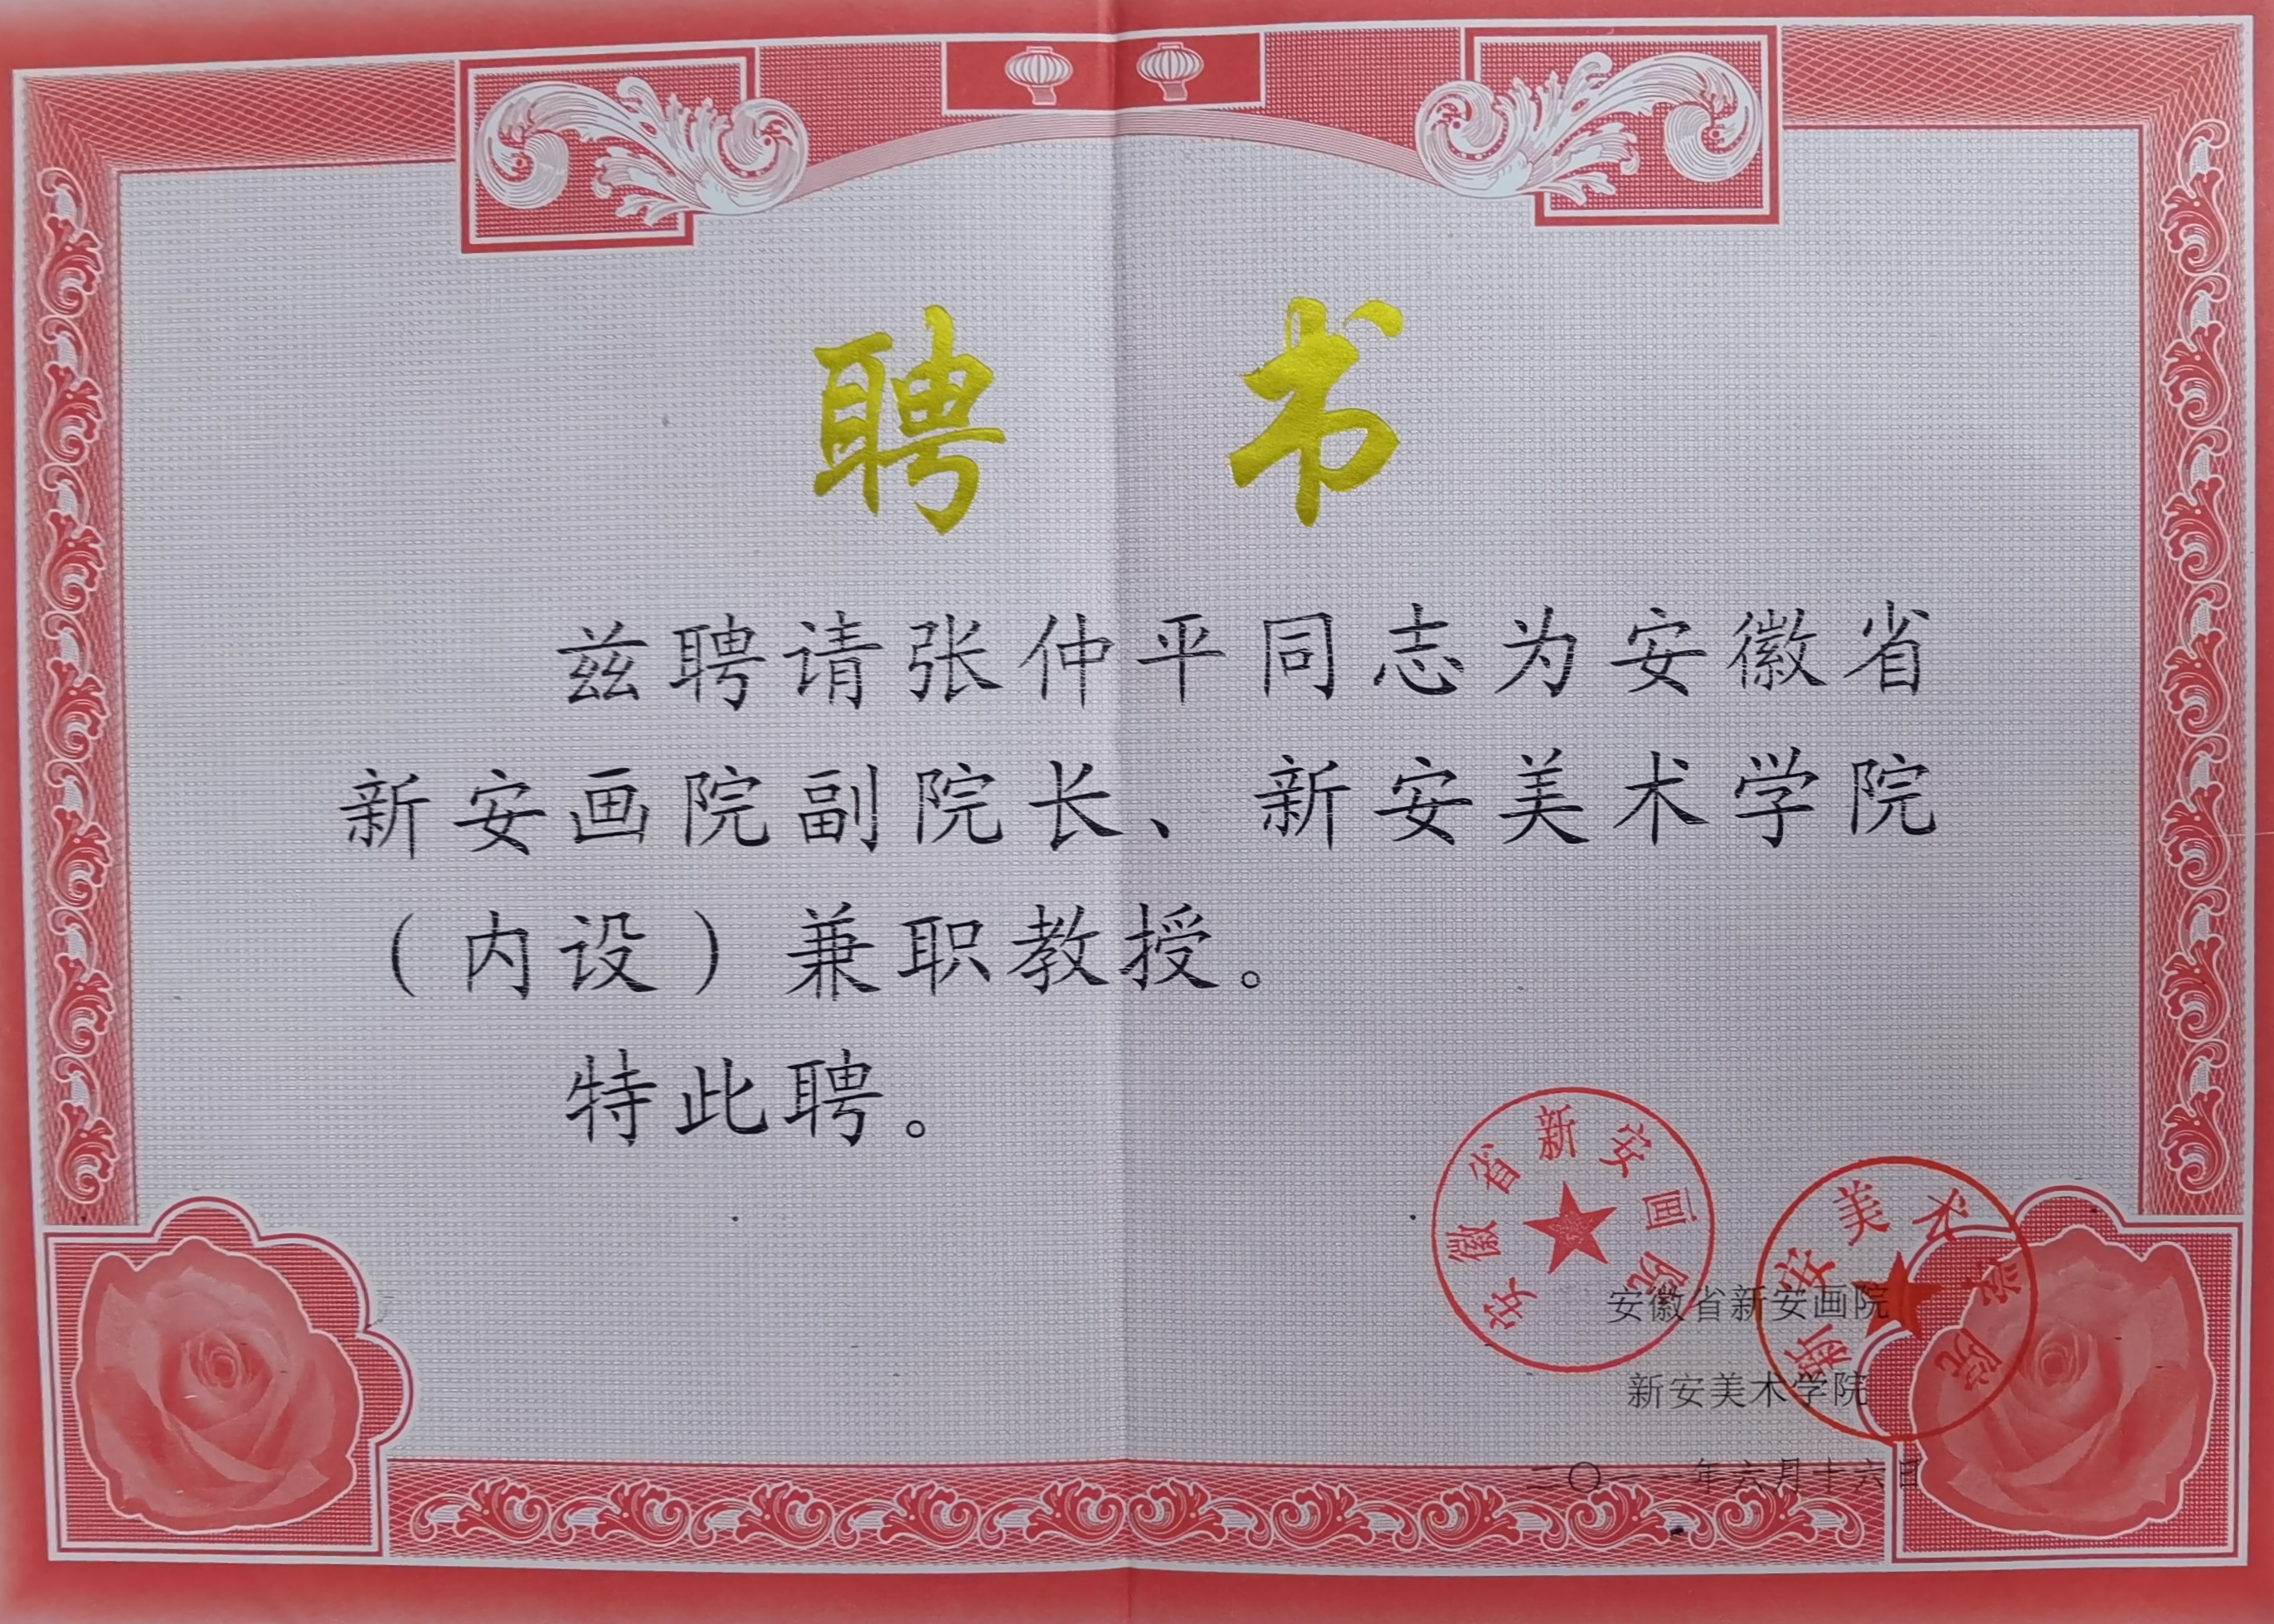 聘 书
兹聘请张仲平同志为安徽省
新安画院副院长、新安美术学院
（内设）兼职教授。
特此聘。
安徽省新安画院
新安美术学院
安徽省新安画院
新安美术学院
二〇一一年六月十六日